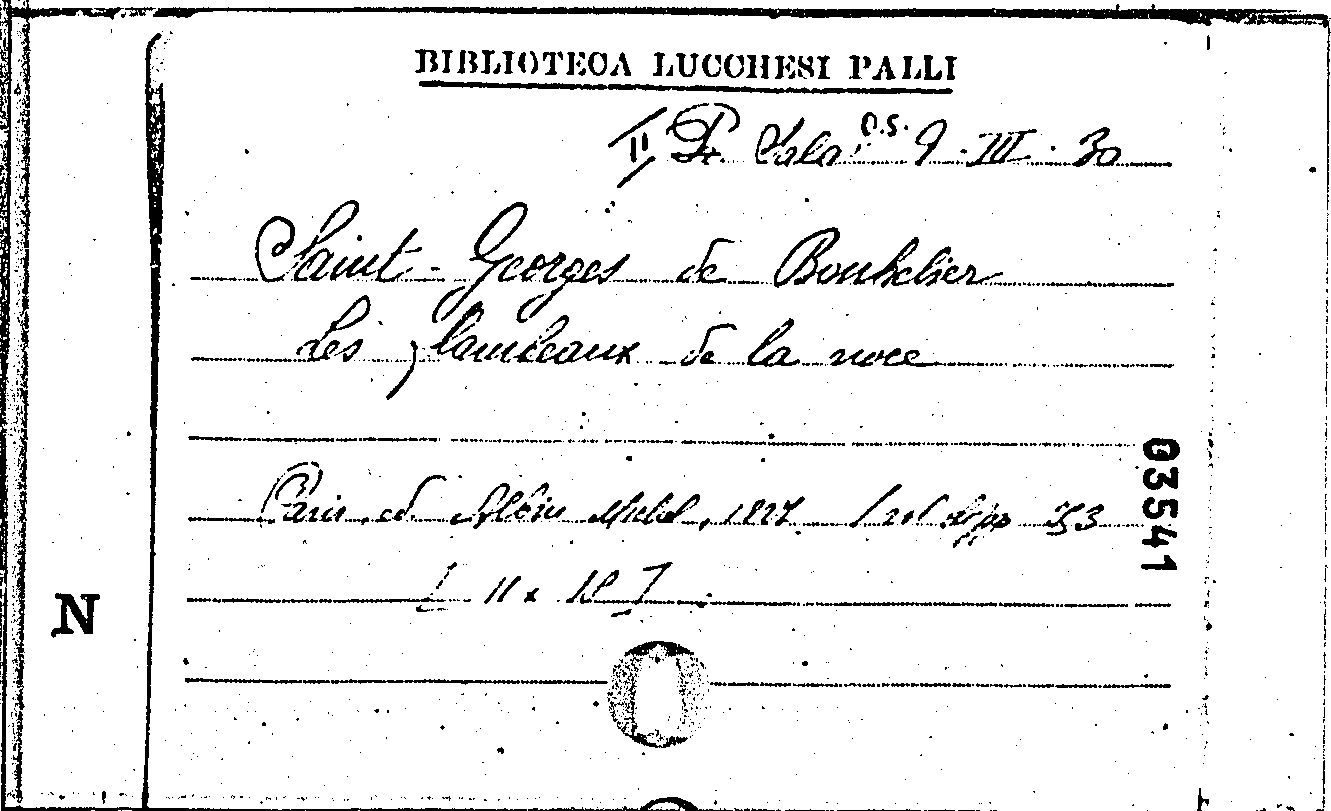 BIBLIOTECA LUCCHESI PALLI
II Pr. Sala O.S. 9-III-30
Saint-Georges de Bouhelier
Les flambeaux de la noce
03541
Paris, ed. Albin Michel, 1927 1 vol. di pp. 53
[ 11 x 18 ]
N